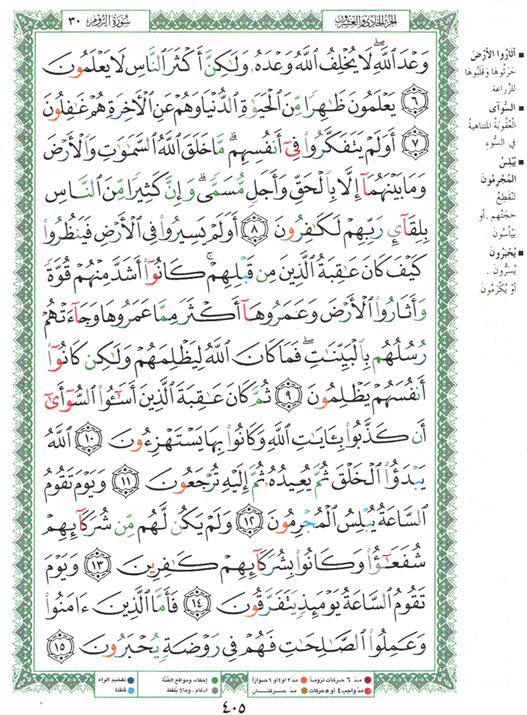 سُورَةُ الرُّومِ ٣٠
الجزء الحادي والعشرون
وَعْدَ اللَّهِ ۖ لَا يُخْلِفُ اللَّهُ وَعْدَهُ وَلَـٰكِنَّ أَكْثَرَ النَّاسِ لَا يَعْلَمُونَ
٦ يَعْلَمُونَ ظَـٰهِرًا مِّنَ الْحَيَوٰةِ الدُّنْيَا وَهُمْ عَنِ الْآخِرَةِ هُمْ غَـٰفِلُونَ
٧ أَوَلَمْ يَتَفَكَّرُوا فِي أَنفُسِهِم ۗ مَّا خَلَقَ اللَّهُ السَّمَـٰوَٰتِ وَالْأَرْضَ
وَمَا بَيْنَهُمَا إِلَّا بِالْحَقِّ وَأَجَلٍ مُّسَمًّى ۗ وَإِنَّ كَثِيرًا مِّنَ النَّاسِ
بِلِقَآئِ رَبِّهِمْ لَكَـٰفِرُونَ ٨ أَوَلَمْ يَسِيرُوا فِي الْأَرْضِ فَيَنظُرُوا
كَيْفَ كَانَ عَـٰقِبَةُ الَّذِينَ مِن قَبْلِهِمْ ۚ كَانُوٓا أَشَدَّ مِنْهُمْ قُوَّةً
وَأَثَارُوا الْأَرْضَ وَعَمَرُوهَآ أَكْثَرَ مِمَّا عَمَرُوهَا وَجَآءَتْهُمْ
رُسُلُهُم بِالْبَيِّنَـٰتِ ۖ فَمَا كَانَ اللَّهُ لِيَظْلِمَهُمْ وَلَـٰكِن كَانُوٓا
أَنفُسَهُمْ يَظْلِمُونَ ٩ ثُمَّ كَانَ عَـٰقِبَةَ الَّذِينَ أَسَـٰٓـُٔوا السُّوٓأَىٰٓ
أَن كَذَّبُوا بِـَٔايَـٰتِ اللَّهِ وَكَانُوا بِهَا يَسْتَهْزِءُونَ ١٠ اللَّهُ
يَبْدَؤُا الْخَلْقَ ثُمَّ يُعِيدُهُ ثُمَّ إِلَيْهِ تُرْجَعُونَ ١١ وَيَوْمَ تَقُومُ
السَّاعَةُ يُبْلِسُ الْمُجْرِمُونَ ١٢ وَلَمْ يَكُن لَّهُم مِّن شُرَكَآئِهِمْ
شُفَعَـٰٓؤُا وَكَانُوا بِشُرَكَآئِهِمْ كَـٰفِرِينَ ١٣ وَيَوْمَ
تَقُومُ السَّاعَةُ يَوْمَئِذٍ يَتَفَرَّقُونَ ١٤ فَأَمَّا الَّذِينَ ءَامَنُوا
وَعَمِلُوا الصَّـٰلِحَـٰتِ فَهُمْ فِي رَوْضَةٍ يُحْبَرُونَ ١٥
■ أثاروا الأرض
حرثوها وقلبوها
للزراعة
■ السوآى
العقوبة المتناهية
في السوء
■ يبلس
المجرمون
تنقطع
حجتهم، أو
ييأسون
■ يحبرون
يسرون،
أو يكرمون
مد ٦ حركات لزوماً مد ٢ أو ٤ أو ٦ جوازاً
مد واجب ٤ أو ٥ حركات مد حركتان
إخفاء، ومواقع الغنة
إدغام، وما لا يلفظ
تفخيم الراء
قلقلة
٤٠٥